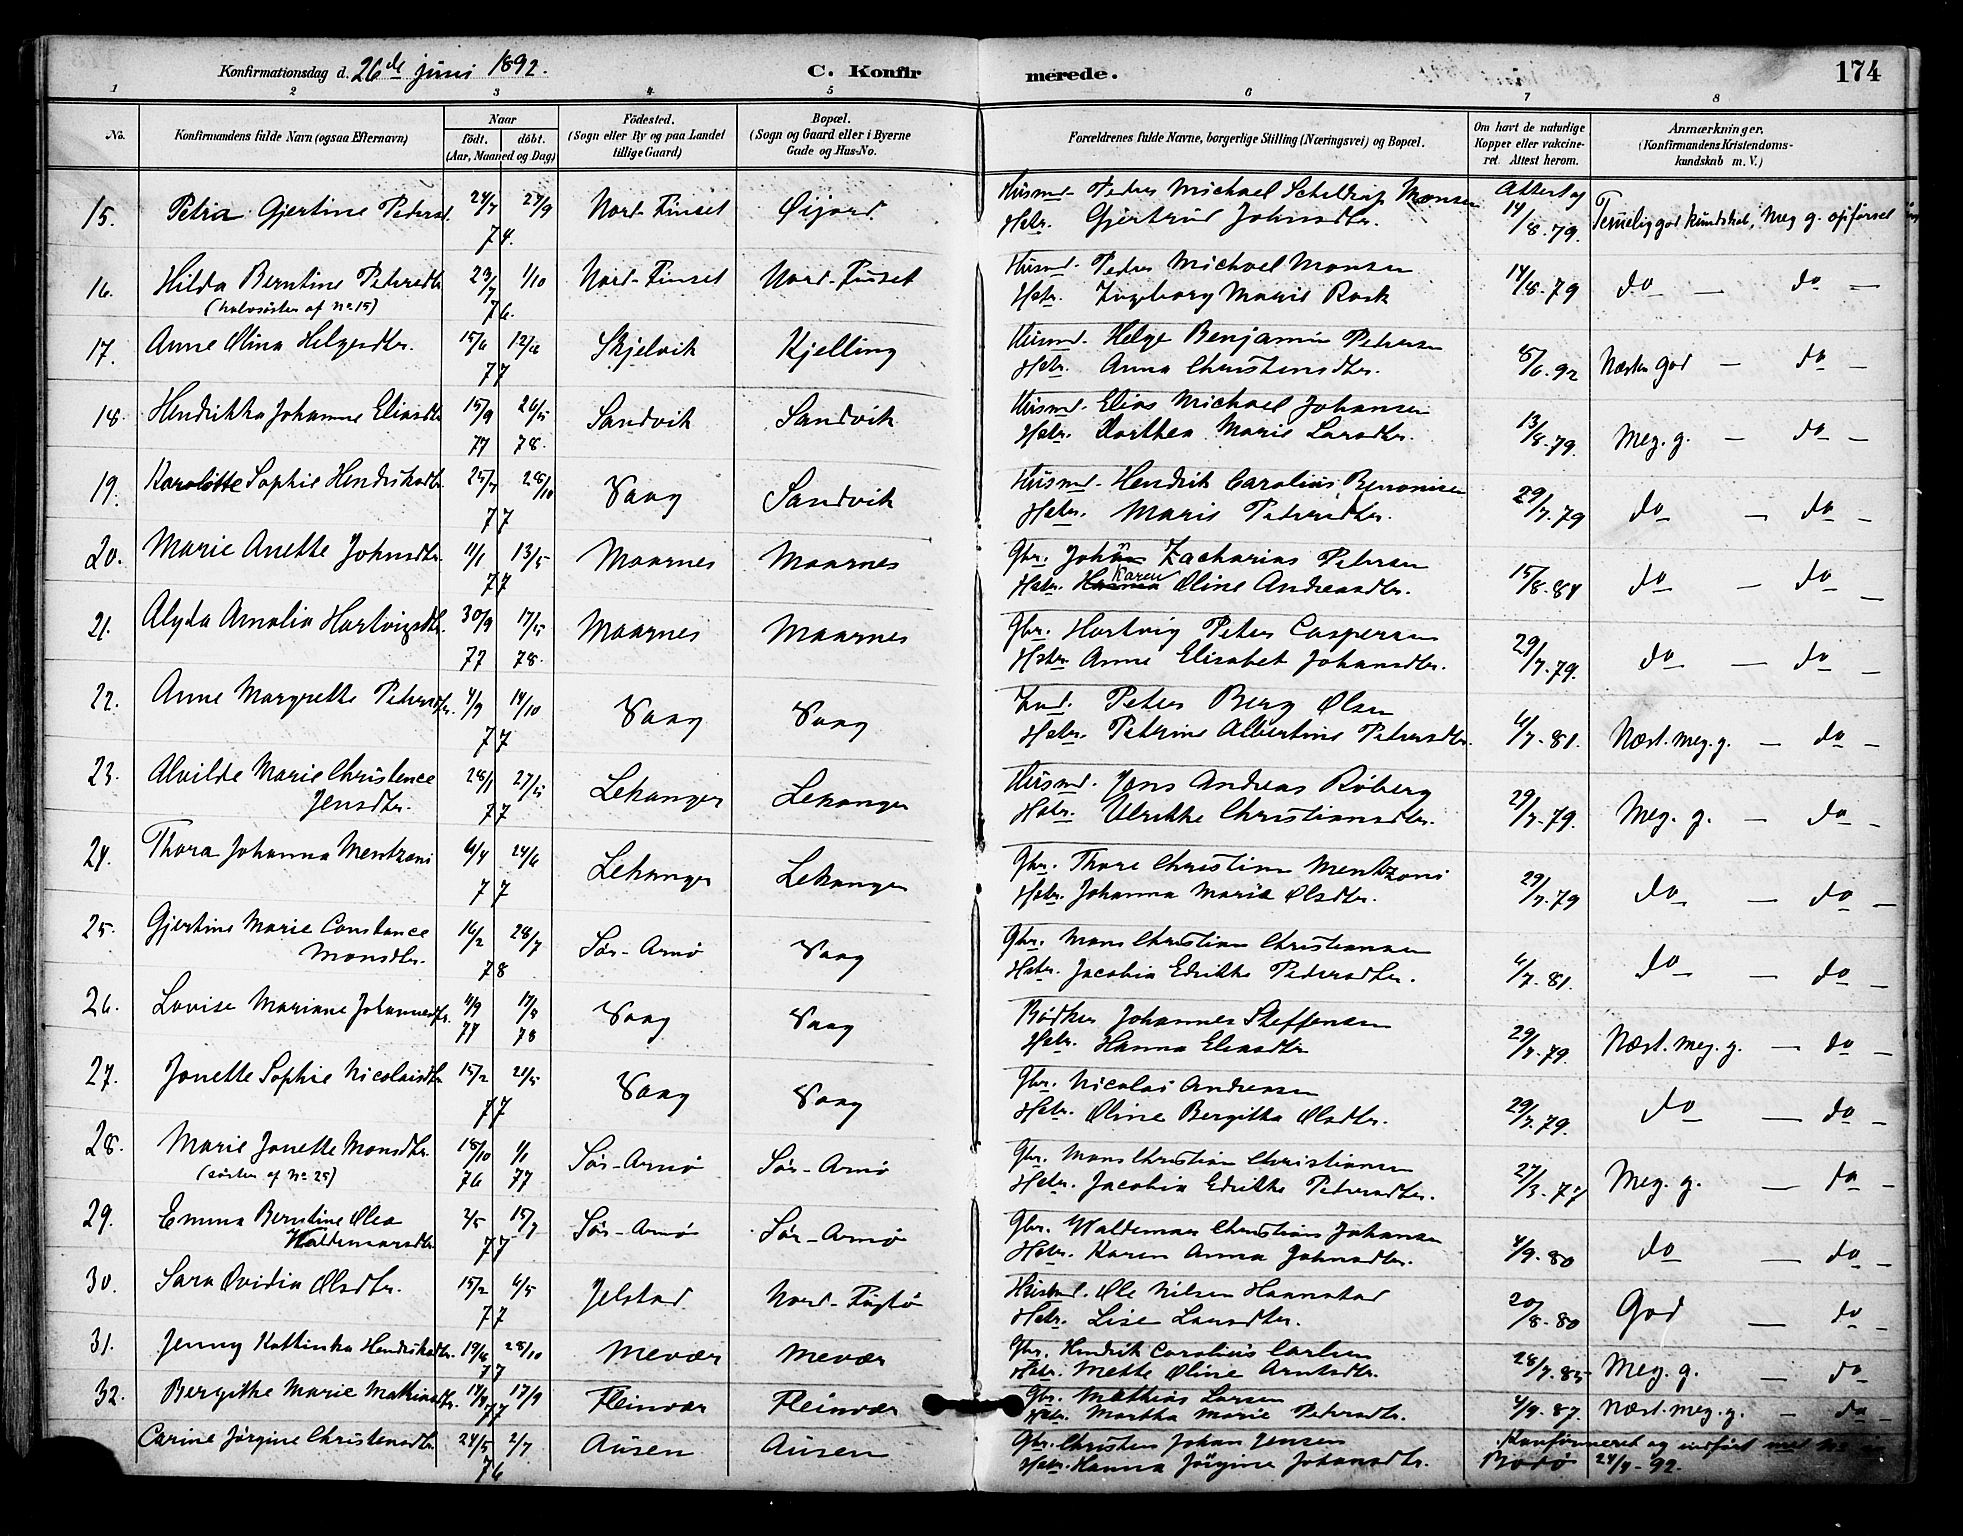 Konfirmationsdag d. 26de juni 1892. C. Konfir merede. 174
1 2 3 4 5 6 7 8
No. Konfirmandens fulde Navn (ogsaa Efternavn) Naar födt. döbt. (Aar, Maaned og Dag) Födested. (Sogn eller By og paa Landet tillige Gaard) Bopæl. (Sogn og Gaard eller i Byerne Gade og Hus-No. Forældrenes fulde Navne, borgerlige Stilling (Næringsvei) og Bopæl. Om havt de naturlige Kopper eller vaccineret. Attest herom. Anmærkninger. (Konfirmandens Kristendomskundskab m. V.)
15. Petria Gjertine Pedersd. 24/7 27/9 74. Nord-Finset Öijord Husmd. Peder Michael Scheldrup Monsen Attest og
Hstr. Gjertrud Johnsdtr. 14/8.79. Temelig god kundskab, Meg g. opförsel
16. Hilda Berntine Petersdtr 23/7 1/10 76. Nord-Finset Nord-Finset Husmd. Peder Michael Monsen 14/8.79 do — do —
(halvsöster af No 15) Hstr. Ingeborg Marie Rask
17. Anne Olina Helgesdtr. 15/6 12/8 77 Skjelvik Kjelling Husmd. Helge Benjamin Petersen
Hstr. Anna Christensdtr. 8/6.92 Næsten god — do —
18. Hendrikka Johanne Eliasdtr 15/9 77 26/5 78. Sandvik Sandvik Husmd. Elias Michael Johansen
Hstr. Dorthea Marie Larsdtr. 13/8.79 Meg. g. — do —
19. Karolotte Sophie Hendriksdtr. 25/7 28/10 77 Vaag Sandvik Husmd. Hendrik Carolius Benonisen
Hstr. Marie Petersdtr. 29/7.79 do — do —
20. Marie Anette Johnsdtr. 11/1 13/5 77 Maarnes Maarnes Gbr. John Zacharias Petersen
Hstr. Hanna Karen Oline Andreasdtr. 15/8.84 do — do —
21. Alyda Amalia Hartvigsdtr. 30/9 77 17/5 78. Maarnes Maarnes Gbr. Hartvig Peter Caspersen
Hstr. Anne Elisabet Johansdtr. 29/7.79. do — do —
22. Anne Margrette Petersdtr. 4/9 14/10 77 Vaag Vaag Ind. Peter Berg Olsen
Hstr. Petrine Albertine Petersdtr. 6/7.81. Næst. meg. g. — do —
23. Alvilde Marie Christence 28/1 27/5 77 Lekanger Lekanger Husmd. Jens Andreas Röberg
Jensdtr. Hstr. Ulrikke Christiansdtr. 29/7.79. Meg. g. — do —
24. Thora Johanna Mentzoni 6/4 24/6 77 Lekanger Lekanger Gbr. Thore Christian Mentzoni
Hstr. Johanna Marie Olsdtr. 29/7.79 do — do —
25. Gjertine Marie Constance 16/2 28/7 78 Sör-Arnö Vaag Gbr. Mons Christian Christiansen
Monsdtr. Hstr. Jacobia Edrikke Pedersdtr. 6/7.81. do — do —
26. Lovise Mariane Johannesdtr. 11/9 77 17/5 78 Vaag Vaag Bödker Johannes Steffensen
Hstr. Hanna Eliasdtr 29/7.79. Næst. meg. g. — do —
27. Jonette Sophie Nicolaisdtr. 15/2 21/5 77 Vaag Vaag Gbr. Nicolai Andreasen
Hstr. Oline Bergitha Olsdtr. 29/7.79. do — do —
28. Marie Jonette Monsdtr. 18/10 76 1/1 77 Sör-Arnö Sör-Arnö Gbr. Mons Christian Christiansen
(söster af No 25) Hstr. Jacobia Edrikke Pedersdtr. 27/3.77 Meg. g. — do —
29. Emma Berntine Olea 2/5 15/7 77 Sör-Arnö Sör-Arnö Gbr. Waldemar Christian Johansen
Waldemarsdtr Hstr. Karen Anna Johnsdtr. 4/9.80 do — do —
30. Sara Ovidia Olsdtr. 15/2 6/5 77 Jelstad Nord-Fuglö Husmd. Ole Nilsen Haanstad
Hstr. Lise Larsdtr. 20/8.80 God — do —
31. Jenny Kathinka Hendriksdtr. 19/8 28/10 77 Mevær Mevær Gbr. Hendrik Carolius Carlsen
Hstr. Mette Oline Arntsdtr. 28/7.85 Meg. g. — do
32. Bergithe Marie Mathiasdtr. 14/8 17/9 77 Fleinvær Fleinvær Gbr. Mathias Larsen
Hstr. Martha Marie Pedersdtr. 4/9.87. Næst. meg. g. — do —
Carine Jörgine Christensdtr. 24/5 2/7 76 Ausen Ausen Gbr. Christen Johan Jensen Konfirmeret og indfört med
Hstr. Hanna Jörgine Johansdtr. Bodö 24/7-92.